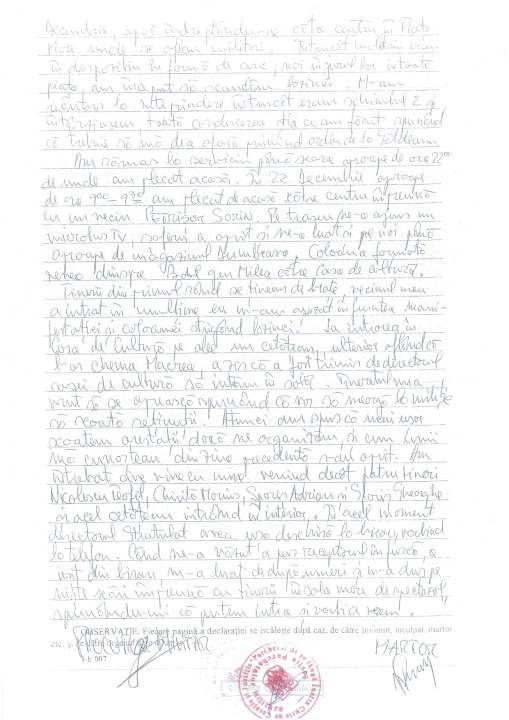 Decembrie, apoi îndreptându-ne către centru în Piața
Mică unde se aflau militarii. Întrucât militarii erau
în dispozitiv în formă de arc, noi în jurul lor în toată
piața, am început să scandăm lozinci. M-am
reîntors la întreprindere întrucât eram schimbul 2 și
întârziasem toată conducerea știa ce am făcut spunând
că trebuie să mă dea afară primind ordin de la
Am rămas la serviciu până seara aproape de ora 22⁰⁰
de unde am plecat acasă. În 22 Decembrie aproape
de ora 9⁰⁰ – 9³⁰ am plecat de acasă către centru împreună
cu un vecin Petrișor Sorin. Pe traseu ne-a ajuns un
microbus TV, șoferul a oprit și ne-a luat și pe noi până
aproape de magazinul Dumbrava. Coloana formată
venea dinspre Podul gen Milea către Casa de Cultură.
Tinerii din primul rând se țineau de brațe, vecinul meu
a intrat în mulțime eu m-am așezat în fruntea mani-
festației și coloanei strigând lozinci. La intrarea în
Casa de Cultură pe alee un cetățean, ulterior aflând că
l-ar chema Macrea, a zis că a fost trimis de directorul
casei de cultură să intrăm în sală. Tineretul nu a
vrut să se oprească spunând că vor să meargă la miliție
să scoată reținuții. Atunci am spus că mai ușor
scoatem arestații dacă ne organizăm, și cum unii
mă cunoșteau din ziua precedentă s-au oprit. Am
întrebat cine vine cu mine venind decât patru tineri
Nicolescu Teofil, Chiriță Marius, Sporis Adrian și Sporis Gheorghe
și acel cetățean intrând în interior. În acel moment
directorul Stratulat avea ușa deschisă la birou, vorbind
la telefon. Când ne-a văzut a pus receptorul în furcă, a
ieșit din birou, m-a luat de după umeri și m-a dus pe
niște scări împreună cu tinerii în sala mare de spectacol,
spunându-mi că putem intra și vorbi ce vrem.
OBSERVAȚIE: Fiecare pagină a declarației se iscălește după caz, de către învinuit, inculpat, martor
etc. și de către
MARTOR
1-b 007